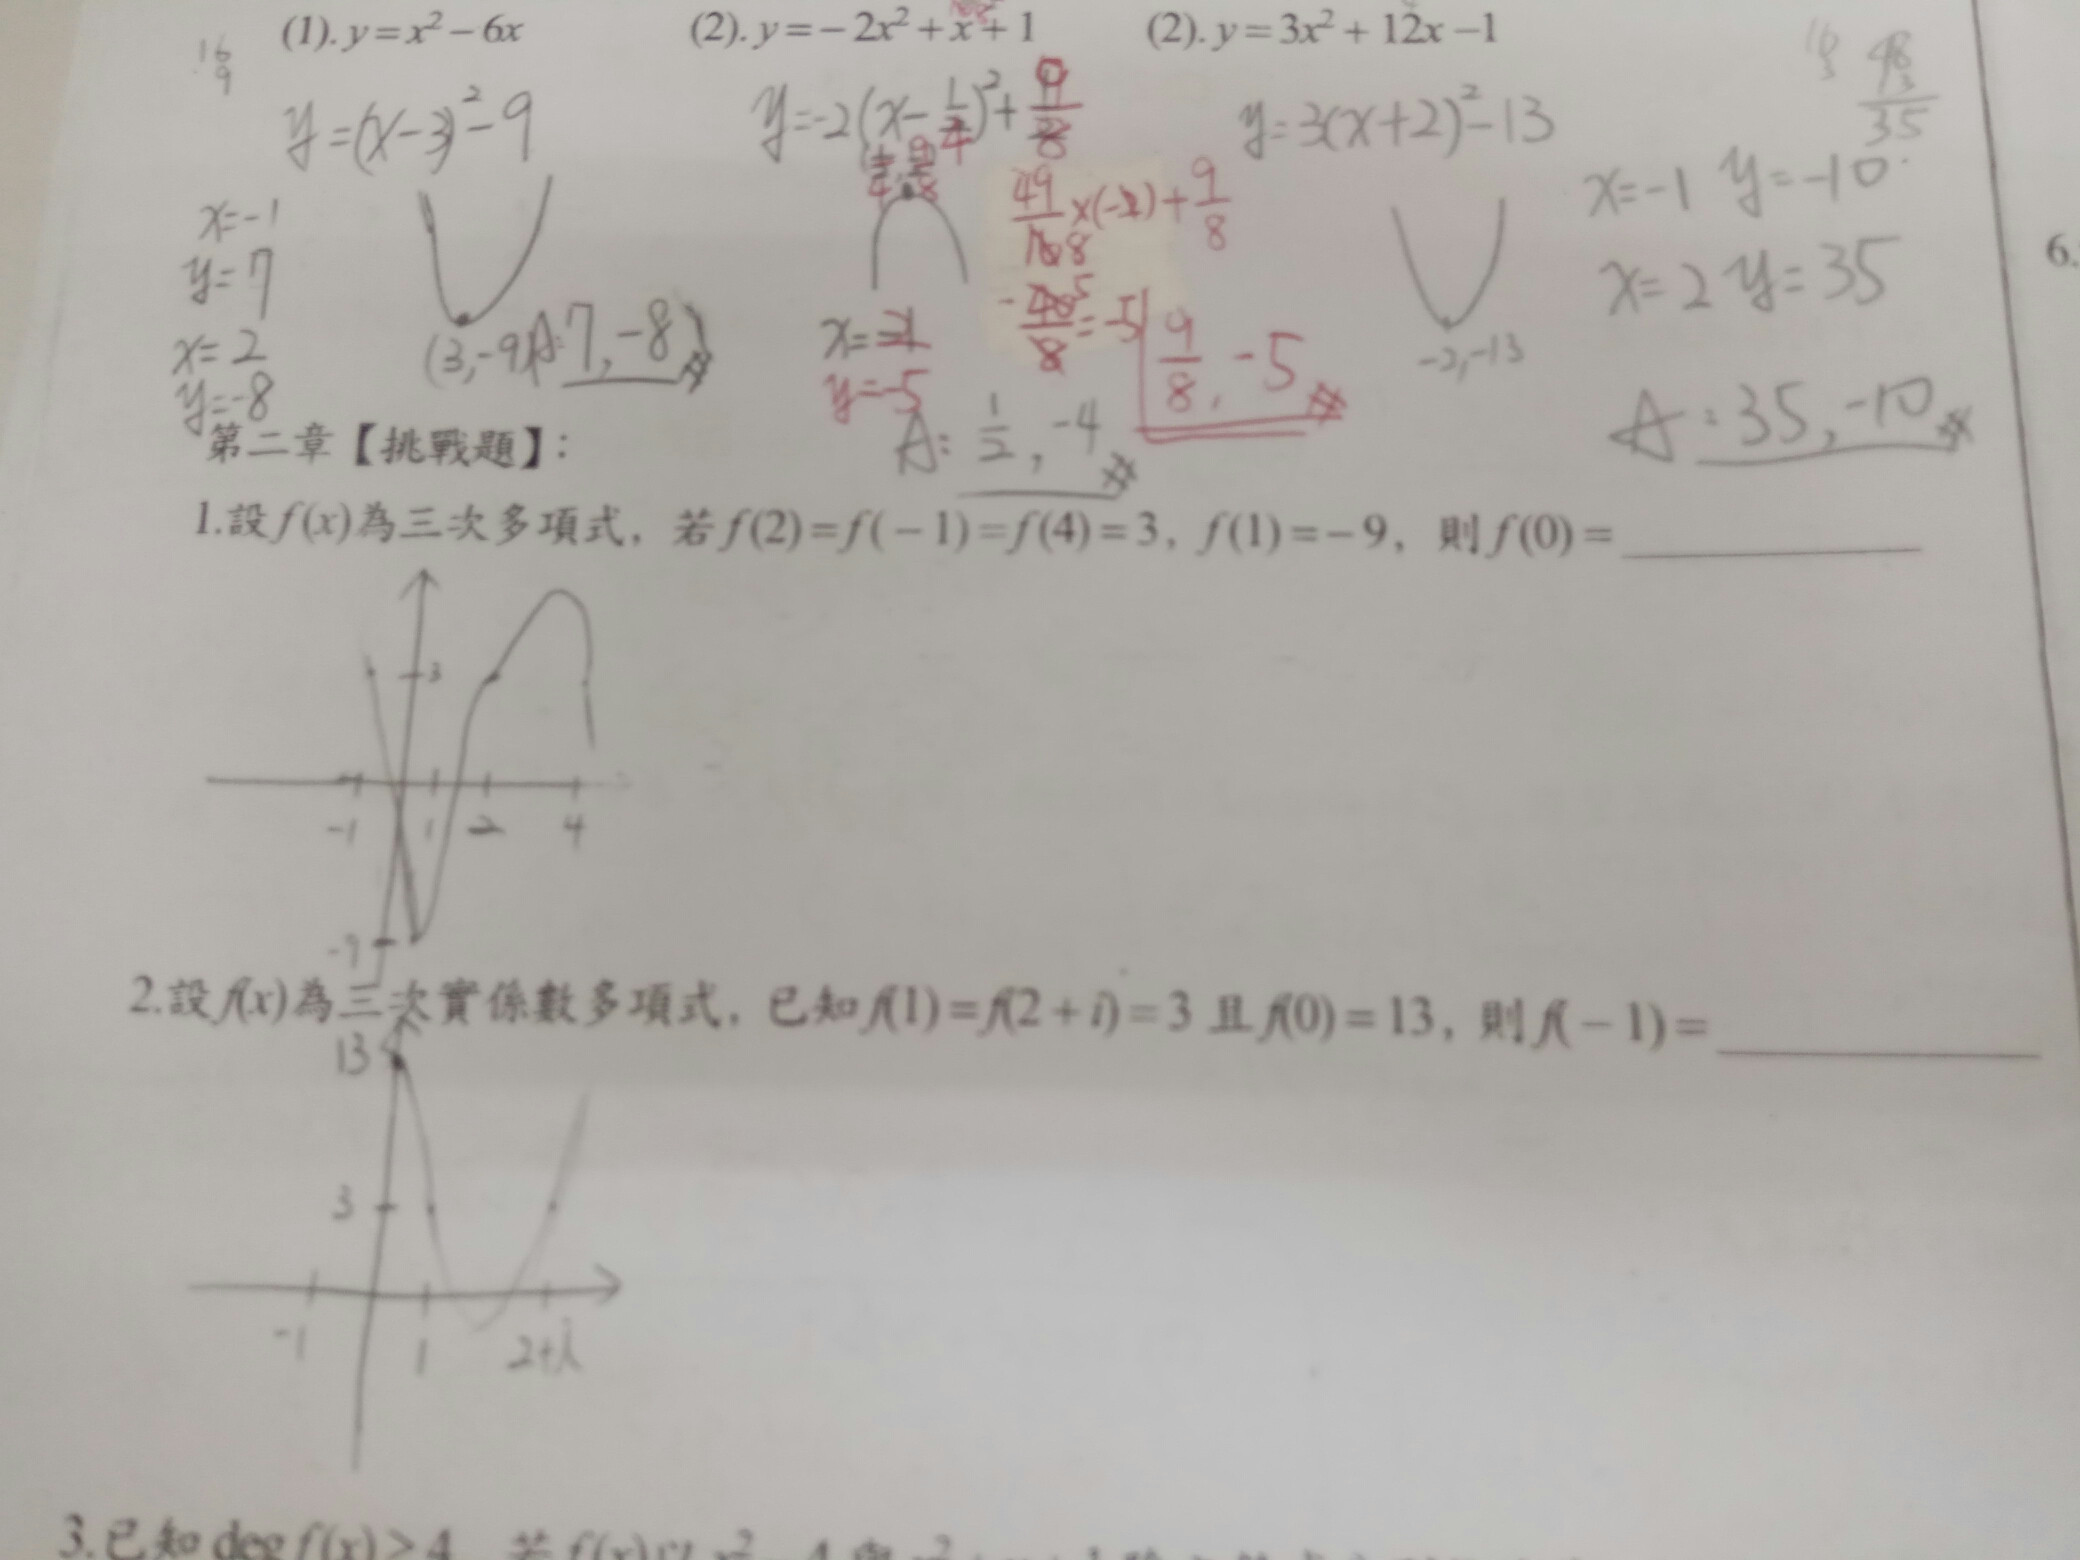 (1). y=x²−6x (2). y=−2x²+x+1 (2). y=3x²+12x−1
16
9
48
3
35
y=(x−3)²−9 y=-2(x−1/4)²+9/8 y=3(x+2)²−13
x=-1 y=-10
x=-1
y=7
49/168×(-2)+9/8
x=2 y=35
-40/8=-5
x=2
y=-8
(3,-9) A:7,-8
x=-1
y=-5
9/8,-5
-2,-13
A:1/2,-4
A:35,-10
第二章【挑戰題】:
1.設f(x)為三次多項式，若f(2)=f(−1)=f(4)=3，f(1)=−9，則f(0)=
3
-1 1 2 4
-9
2.設f(x)為三次實係數多項式，已知f(1)=f(2+i)=3且f(0)=13，則f(−1)=
13
3
-1 1 2+i
6.
3.已知deg f(x)>4